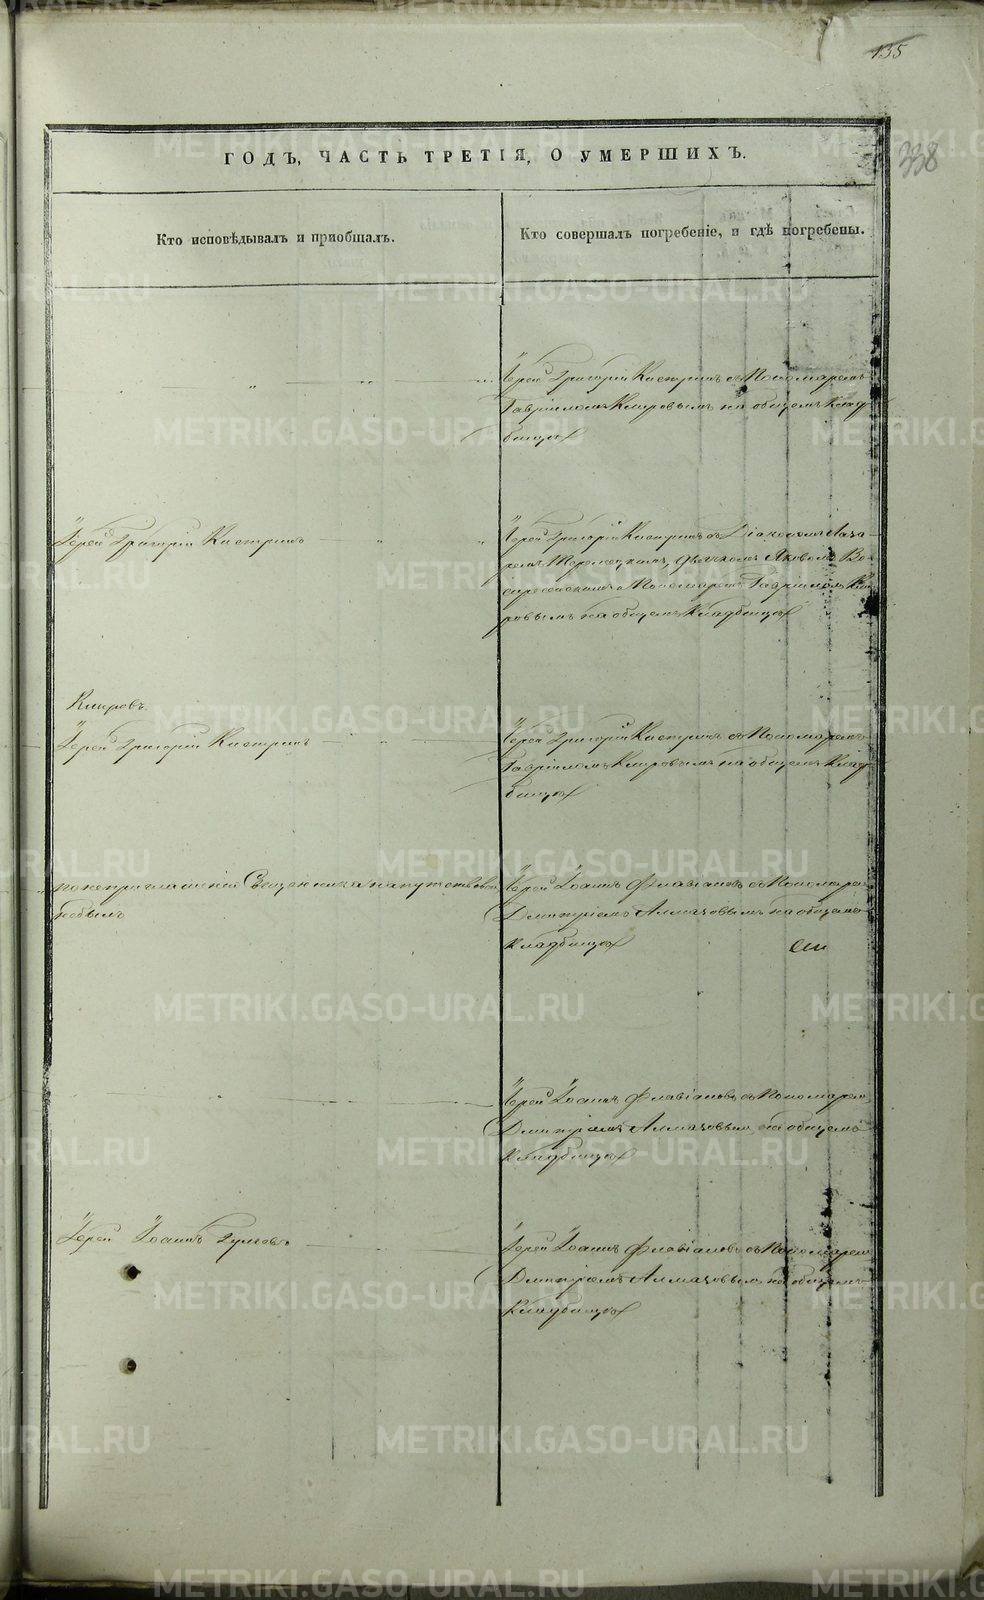 135
338
ГОДЪ, ЧАСТЬ ТРЕТІЯ, О УМЕРШИХЪ.
Кто исповѣдывалъ и пріобщалъ.
Кто совершалъ погребеніе, и гдѣ погребены.
Іерей Григорій Кастринъ съ Пономаремъ
Гавріиломъ Кировымъ на общемъ клад-
бищѣ
Іерей Григорій Кастринъ
Іерей Григорій Кастринъ съ Діакономъ Лаза-
ремъ дьячкомъ Яковомъ Во-
скресенскимъ и Пономаремъ Гавріиломъ Ки-
ровымъ на общемъ кладбищѣ
Кировъ.
Іерей Григорій Кастринъ
Іерей Григорій Кастринъ съ Пономаремъ
Гавріиломъ Кировымъ на общемъ клад-
бищѣ
по неприглашенію Священника напутствован
небылъ
Іерей Іоаннъ Флавіановъ съ Пономаремъ
Дмитріемъ Алмазовымъ на общемъ
кладбищѣ
Іерей Іоаннъ Флавіановъ съ Пономаремъ
Дмитріемъ Алмазовымъ на общемъ
кладбищѣ
Іерей Іоаннъ
Іерей Іоаннъ Флавіановъ съ Пономаремъ
Дмитріемъ Алмазовымъ на общемъ
кладбищѣ
METRIKI.GASO-URAL.RU